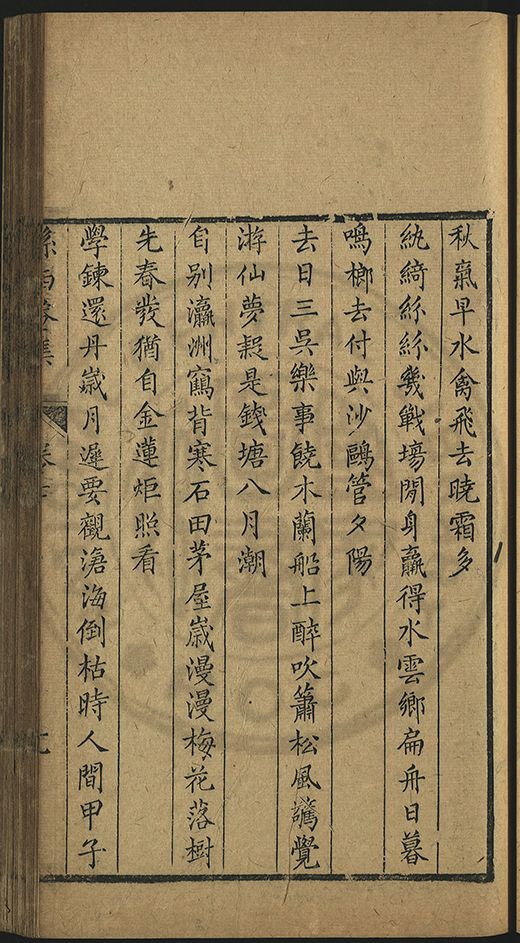 秋氣早水禽飛去曉霜多
紈綺絲絲幾戰場閒身贏得水雲鄉扁舟日暮
鳴榔去付與沙鷗管夕陽
去日三吳樂事饒木蘭船上醉吹簫松風驚覺
游仙夢疑是錢塘八月潮
自別瀛洲鶴背寒石田茅屋歲漫漫梅花落樹
先春發猶自金蓮炬照看
學鍊還丹歲月遲要觀滄海倒枯時人間甲子
集 卷
七